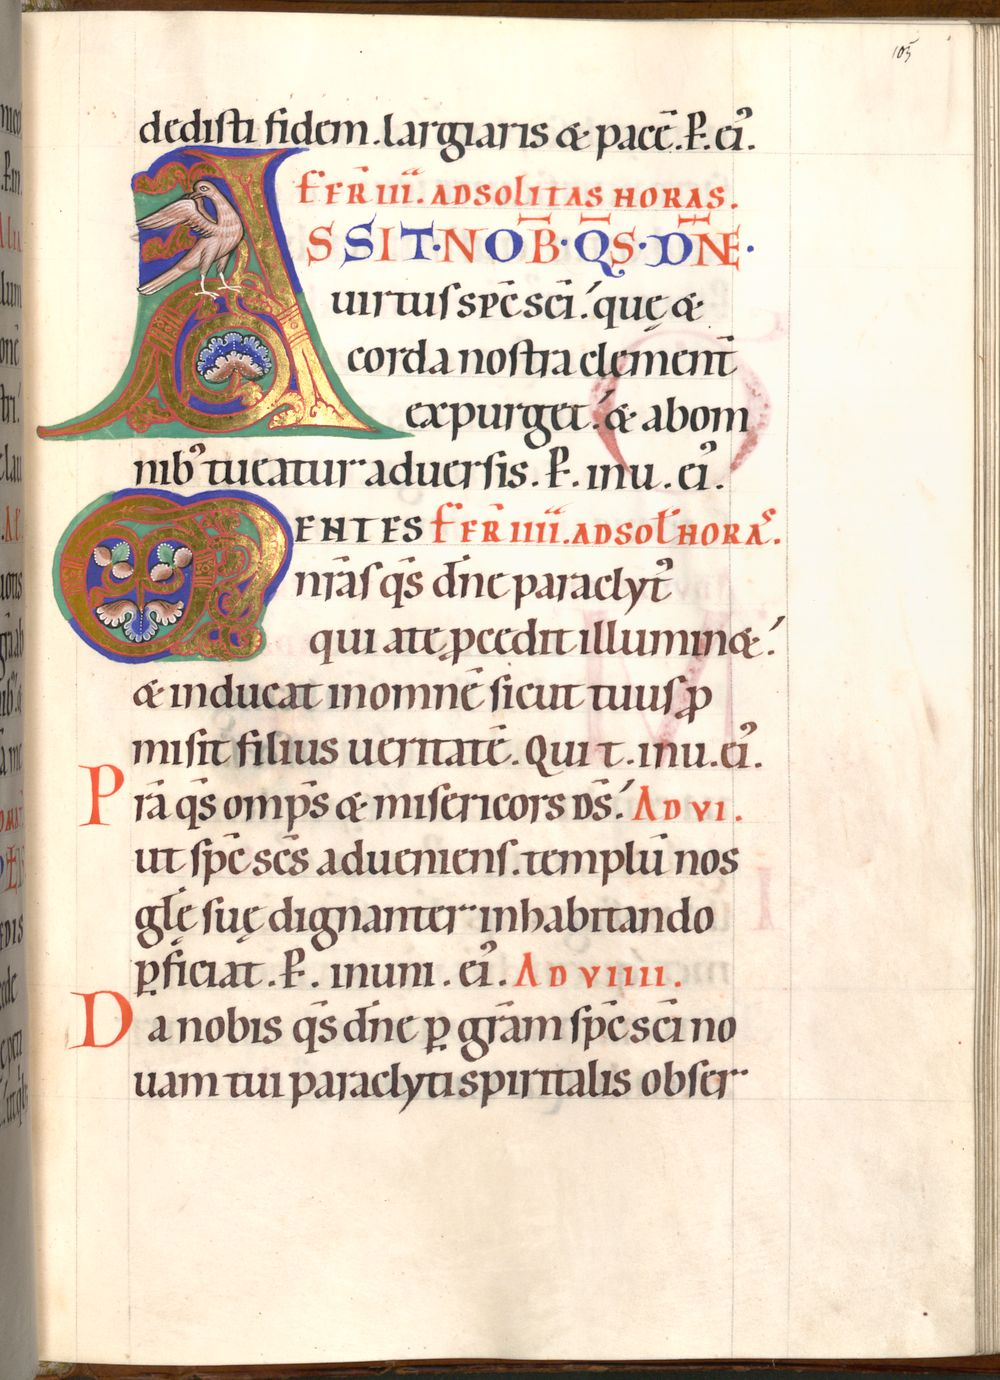 105
dedisti fidem. largiaris & pacē. P̄. ei᾿.
F̄ FER̄ III. AD SOLITAS HORAS.
ASSIT·NOB̄·Q̄S·DN̄E·
uirtus sp̄c sc̄i.᾿ quę &
corda nostra clement̄
expurget.᾿ & ab om
nib᾿ tueatur aduersis. P̄. inu. ei᾿.
MENTES F̄ FER̄ IIII. AD SOL̄ HORAS.
nr̄as q̄s dn̄e paraclyt᾿
qui a te ꝓcedit illumin&.᾿
& inducat in omnē sicut tuus ꝓ
misit filius ueritatē. Qui t. inu. ei᾿.
Pr̄a q̄s omp̄s & misericors DS̄.᾿ AD VI.
ut sp̄c sc̄s adueniens. templū nos
gl̄ę suę dignanter inhabitando
ꝑficiat. P̄. inuni. ei᾿. AD VIIII.
Da nobis q̄s dn̄e ꝑ gr̄am sp̄c sc̄i no
uam tui paraclyti spiritalis obser